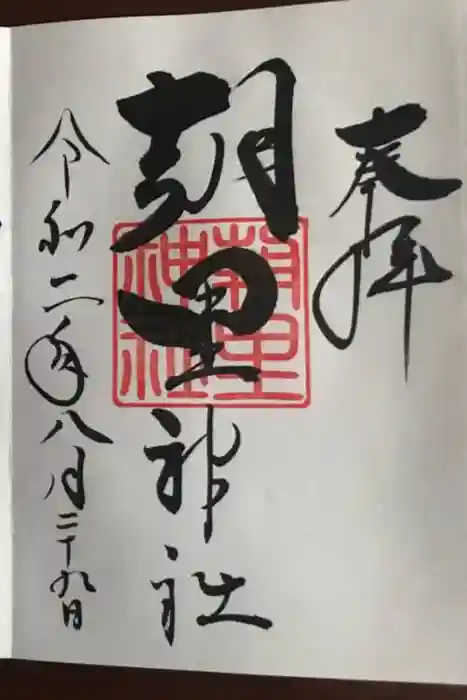 奉拝
朝里神社
朝里
神社
令和二年八月二十九日